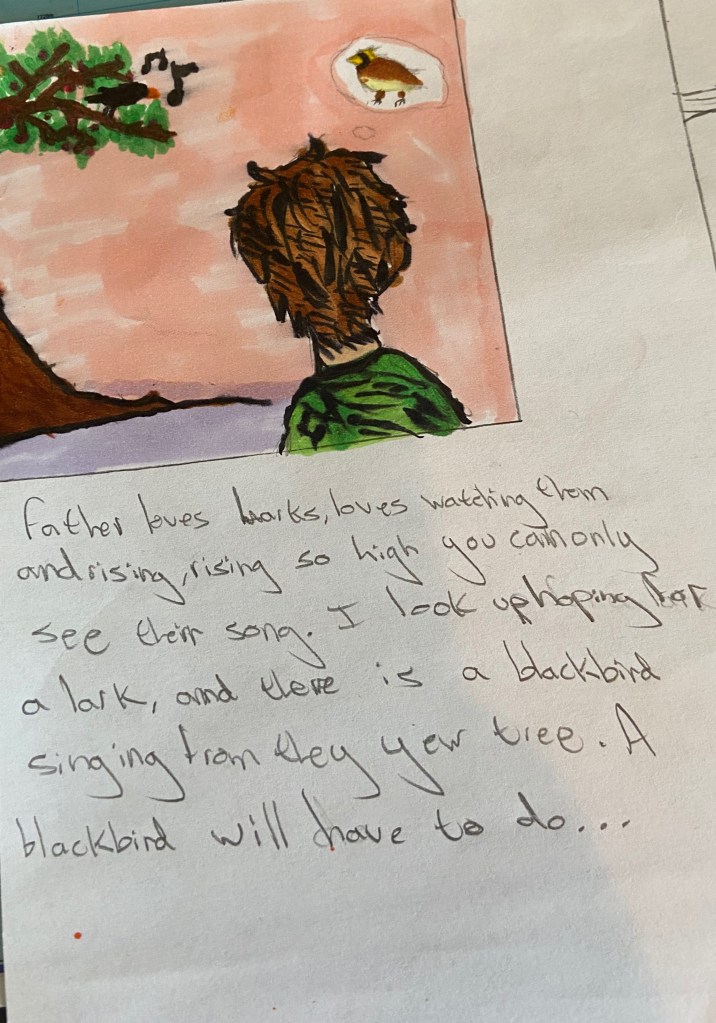 Father loves larks, loves watching them
and rising, rising so high you can only
see their song. I look up hoping for
a lark, and there is a blackbird
singing from they yew tree. A
blackbird will have to do...